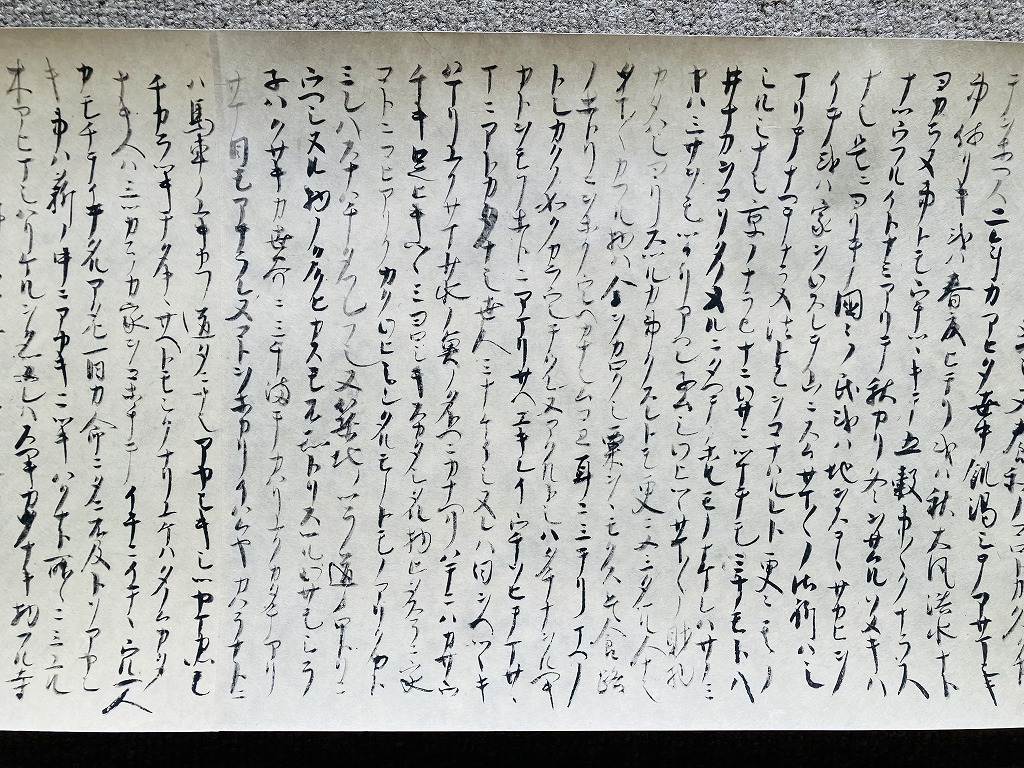 又養和ノコロトカ久クナリテ
ヲホエス二年カアヒタ世中飢渇シテアサマシキ
事侍リキ或ハ春夏ヒテリ或ハ秋大風洪水ナト
ヨカラヌ事トモウチツヽキテ五穀事〳〵クナラス
ナツウフルイトナミアリテ秋カリ冬ヲサムルソメキハ
ナシ是ニヨリテ國々ノ民或ハ地ヲステヽサカヒヲ
イテ或ハ家ヲワスレテ山ニスムサマ〳〵ノ御祈ハシ
マリテナヘテナラヌ法トモヲコナハルレト更ニ其ノ
シルシナシ京ノナラヒナニワサニツケテモミナモトハ
井ナカヲコソタノメルニタエテノホルモノナケレハサノミ
ヤハミサヲモツクリアヘンネムシワヒツヽサマ〳〵ノ財物
カタハシヨリスツルカ事クスレトモ更ニメミタツル人ナシ
タマ〳〵カフル物ハ金ヲカロクシ粟ヲヽモクス乞食路
ノホトリニヲホクウレヘカナシムコヱ耳ニミテリマヘノ
トシカクノ如クカラウシテクレヌアクルトシハタチナヲルヘキ
カトヲモフホトニアマリサヘエキレイウチソヒテマサヽ
マニアトカタナシ世人ミナケイシヌレハ日ヲヘツヽキ
ハマリユクサマ少水ノ魚ノタトヘニカナヘリハテニハカサウ
チキ足ヒキツヽミヨロシキスカタシタル物ヒタスラニ家
コトニコヒアリクカクワヒシレタルモノトモノアリクカト
ミレハスナハチタフレフシヌ築地ノツラ道ノホトリニ
ウヘシヌル物ノタクヒカスモ不知トリスツルワサモシラ
ネハクサキカ世界ニミチ満テカハリユクカタチアリ
サマ目モアテラレヌコトヲホカリイハムヤカハラナトニ
ハ馬車ノユキカフ道タニナシアヤシキシツヤマカツモ
チカラツキテタキヽサヘトモシクナリユケハタノムカタ
ナキ人ハミツカラカ家ヲコホチテイチニイテヽウル一人
カモチテイテタルアタヒ一日カ命ニタニ不及トソアヤシ
キ事ハ薪ノ中ニアカキニツキハクナト所々ニミユル
木アヒマシハリケルヲタツヌレハスヘキカタナキ物フル寺